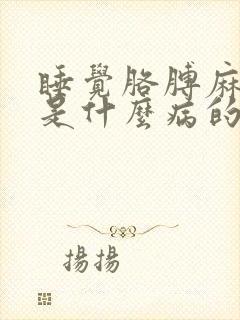 睡覺胳膊麻
是什麼病的
揚揚